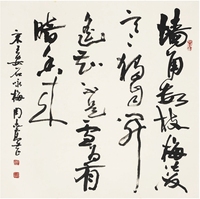 墙角数枝梅凌
寒独自开
遥知不是雪为有
暗香来
王安石咏梅 周志高书